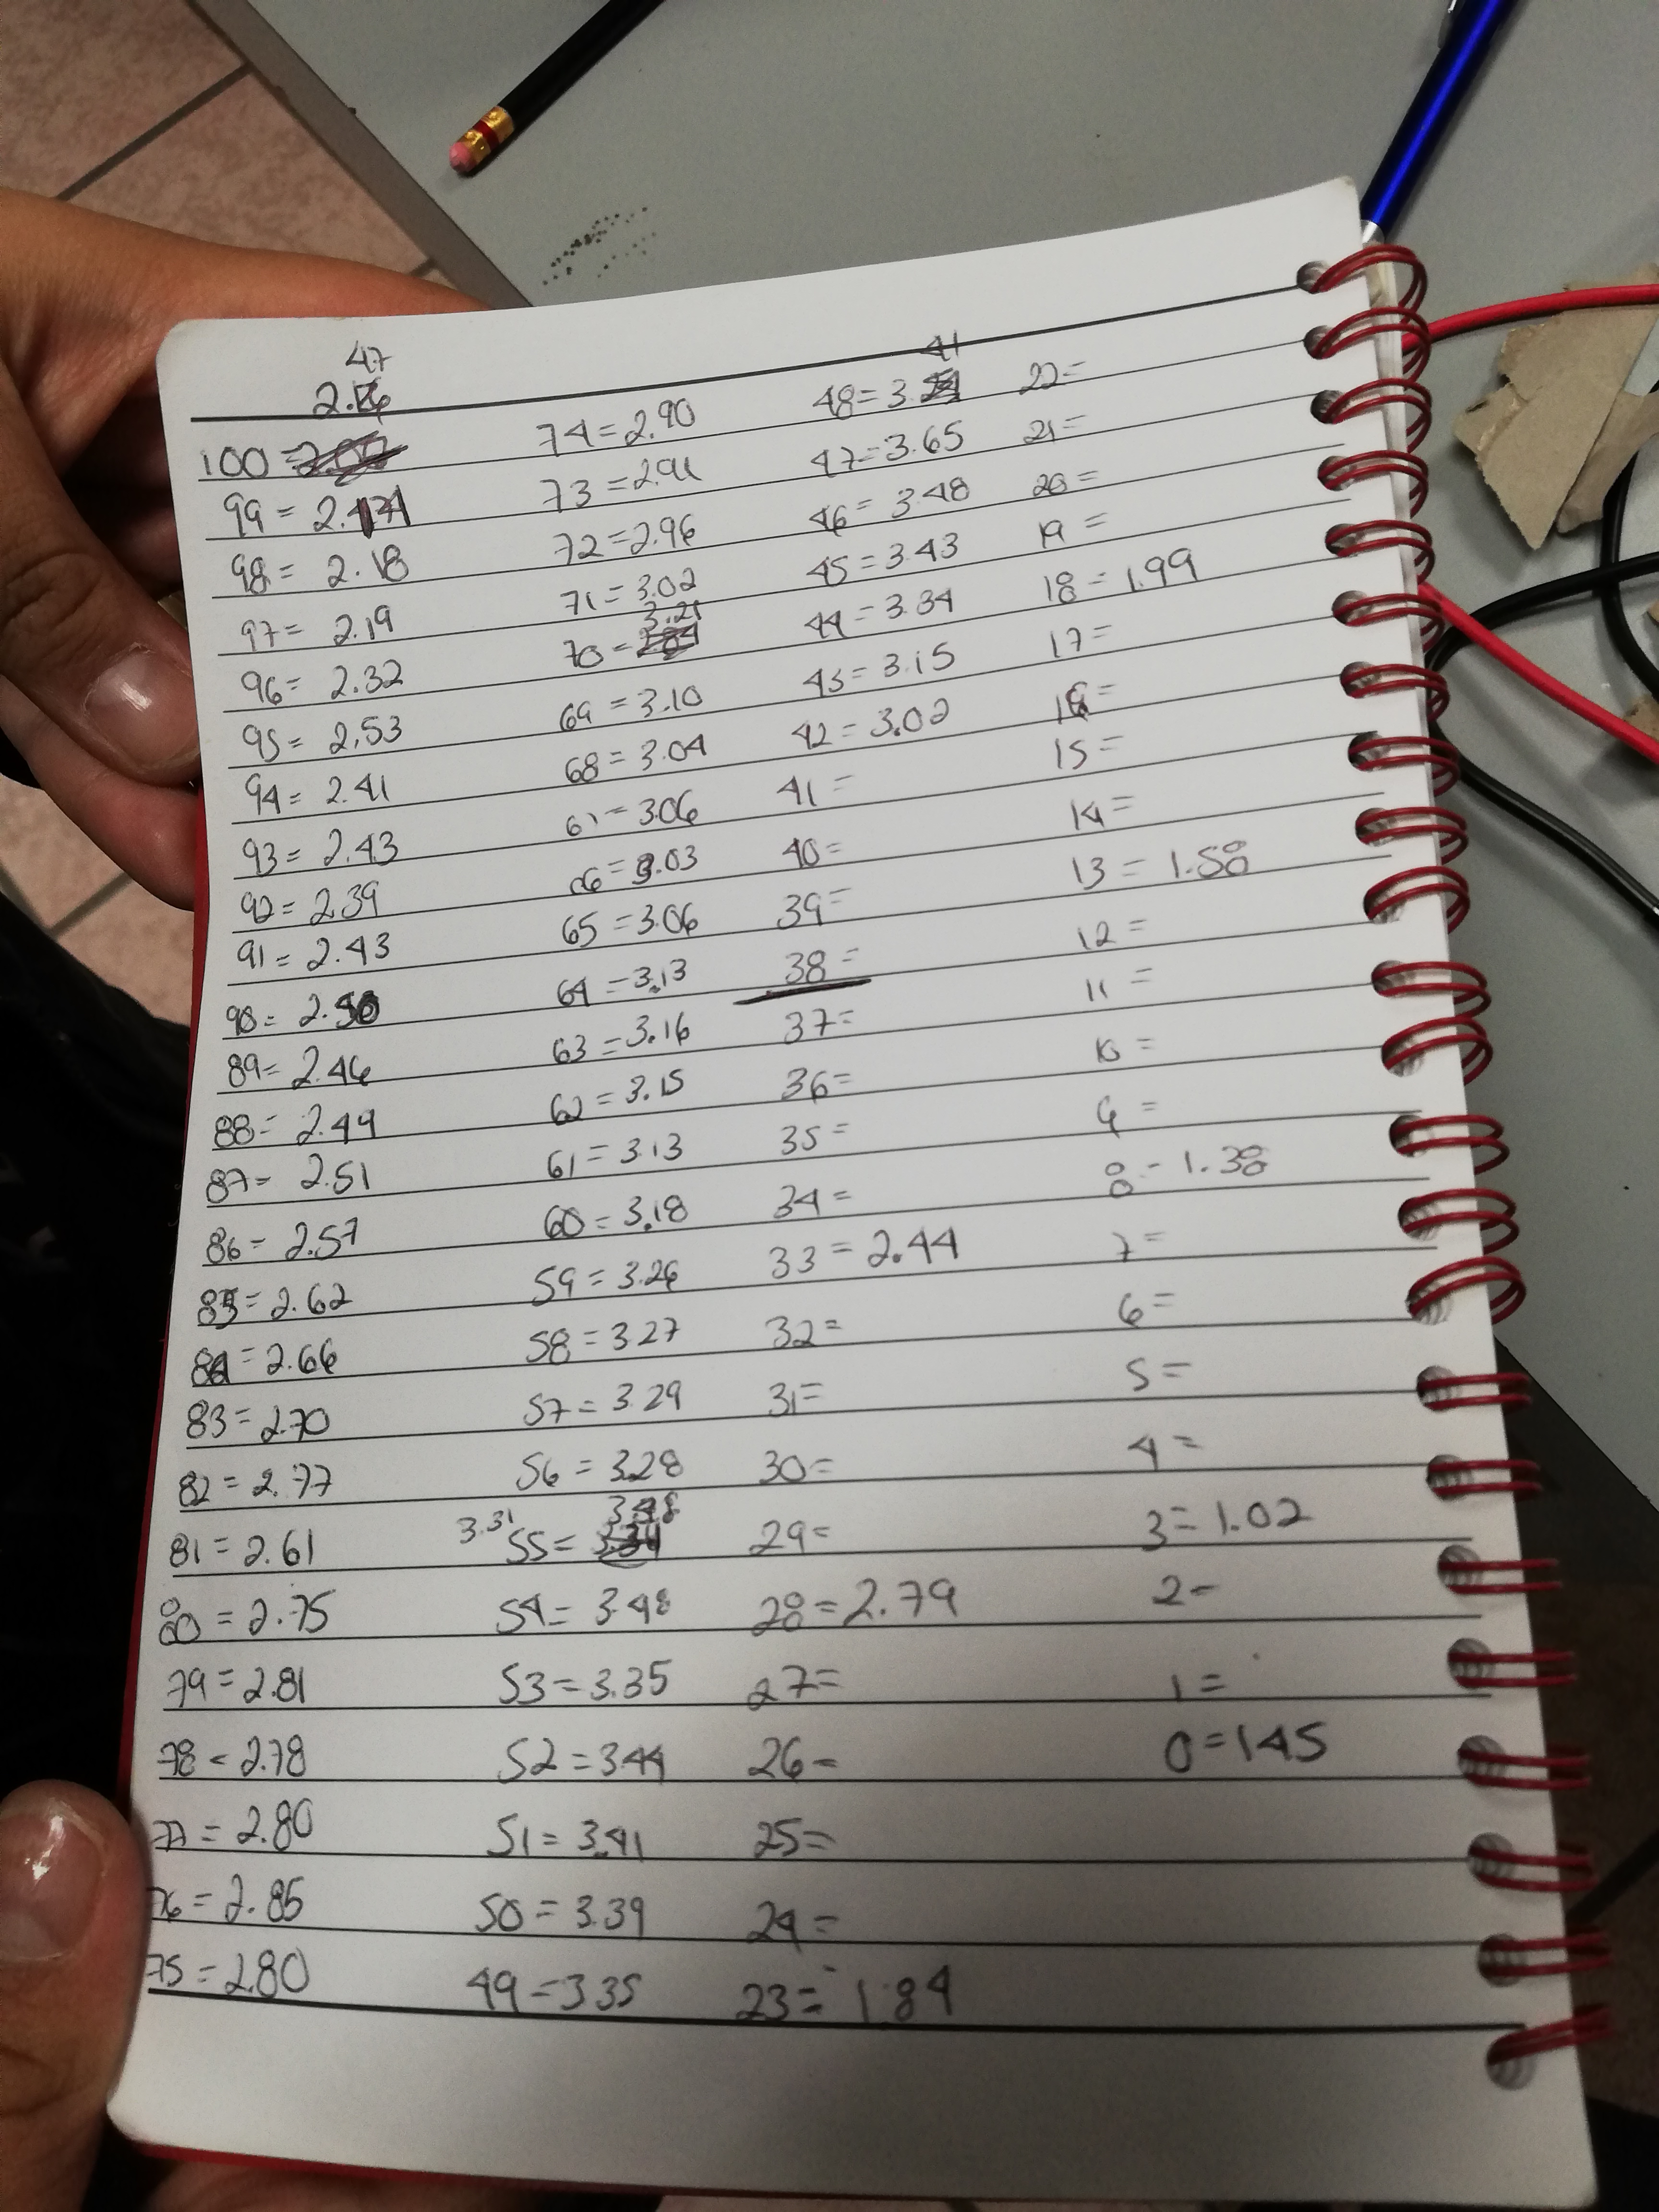 47
2.16
100 =
99 = 2.174
98 = 2.18
97 = 2.19
96 = 2.32
95 = 2.53
94 = 2.41
93 = 2.43
92 = 2.39
91 = 2.43
90 =
89 = 2.46
88 = 2.49
87 = 2.51
86 = 2.57
85 = 2.62
84 = 2.66
83 = 2.70
82 = 2.77
81 = 2.61
80 = 2.75
79 = 2.81
78 = 2.78
77 = 2.80
76 = 2.85
75 = 2.80
74 = 2.90
73 = 2.91
72 = 2.96
71 = 3.02
3.21
70 =
69 = 3.10
68 = 3.04
67 = 3.06
66 = 3.03
65 = 3.06
64 = 3.13
63 = 3.16
62 = 3.15
61 = 3.13
60 = 3.18
59 = 3.26
58 = 3.27
57 = 3.29
56 = 3.28
3.48
3.31 55 = 3.34
54 = 3.48
53 = 3.35
52 = 3.44
51 = 3.41
50 = 3.39
49 = 3.35
41
48 = 3.
47 = 3.65
46 = 3.48
45 = 3.43
44 = 3.34
43 = 3.15
42 = 3.02
41 =
40 =
39 =
38 =
37 =
36 =
35 =
34 =
33 = 2.44
32 =
31 =
30 =
29 =
28 = 2.79
27 =
26 =
25 =
24 =
23 = 1.84
22 =
21 =
20 =
19 =
18 = 1.99
17 =
16 =
15 =
14 =
13 = 1.58
12 =
11 =
10 =
9 =
8 - 1.38
7 =
6 =
5 =
4 =
3 = 1.02
2 -
1 =
0 = 1.45